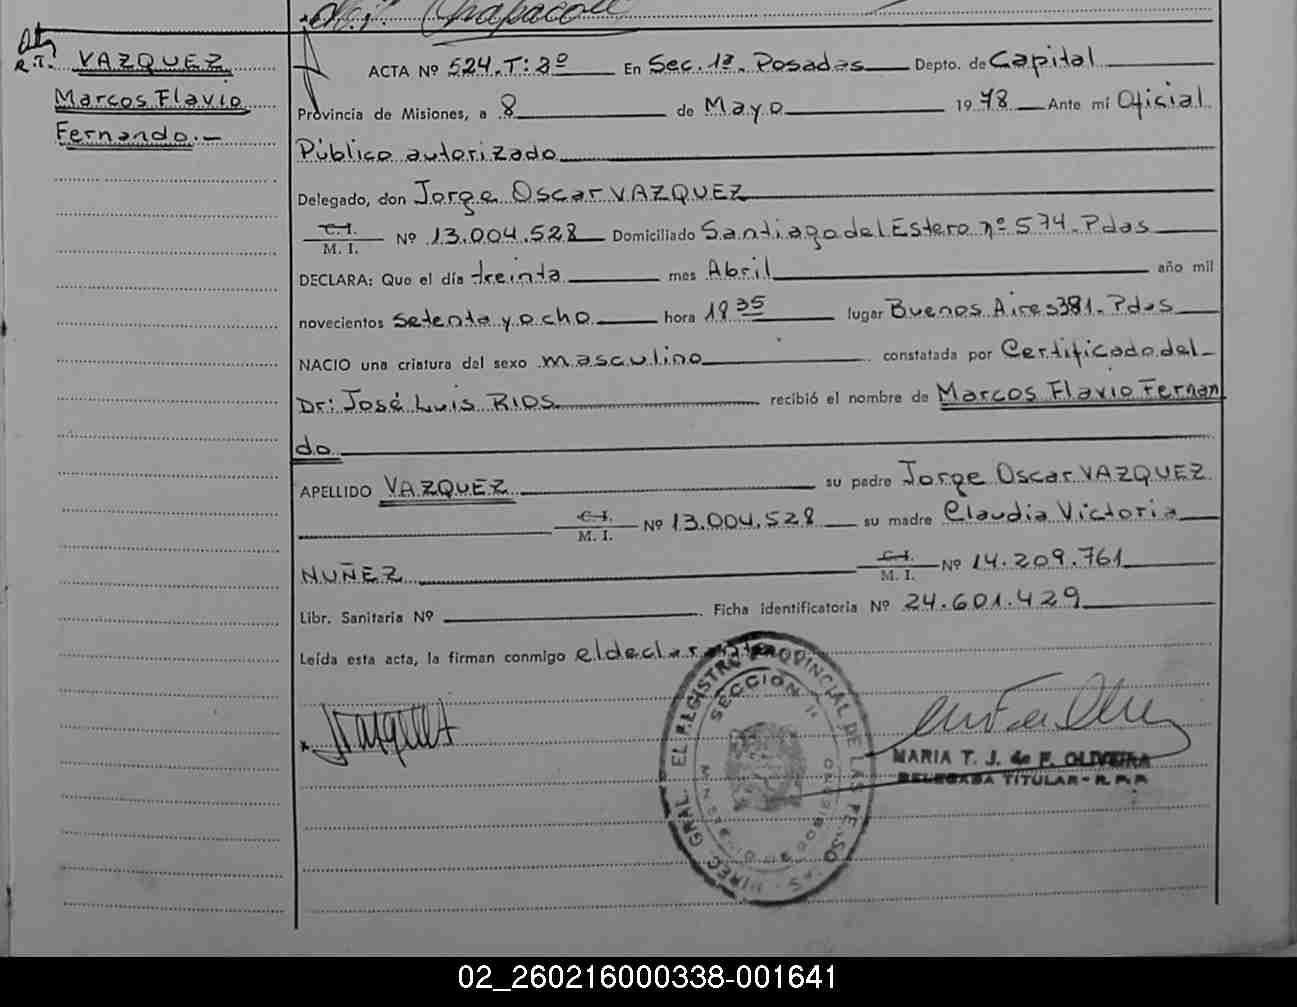 R.T. VAZQUEZ
Marcos Flavio
Fernando.-
ACTA Nº 524. T: 3º En Sec. 1ª. Posadas Depto. de Capital
Provincia de Misiones, a 8 de Mayo 1978 Ante mí Oficial
Público autorizado
Delegado, don Jorge Oscar VAZQUEZ
C.I. M. I. Nº 13.004.528 Domiciliado Santiago del Estero nº 574. Pdas
DECLARA: Que el día treinta mes Abril año mil
novecientos setenta y ocho hora 18 35 lugar Buenos Aires 381. Pdas
NACIO una criatura del sexo masculino constatada por Certificado del
Dr: José Luis RIOS recibió el nombre de Marcos Flavio Fernan
do
APELLIDO VAZQUEZ su padre Jorge Oscar VAZQUEZ
C.I. M. I. Nº 13.004.528 su madre Claudia Victoria
NUÑEZ C.I. M. I. Nº 14.209.761
Libr. Sanitaria Nº Ficha identificatoria Nº 24.601.429
Leída esta acta, la firman conmigo el declarante
DIREC. GRAL. EL REGISTRO PROVINCIAL DE LAS PERSONAS
SECCION 1ª
MISIONES
Vazquez
MARIA T. J. de F. OLIVEIRA
DELEGADA TITULAR - R. P. P.
02_260216000338-001641